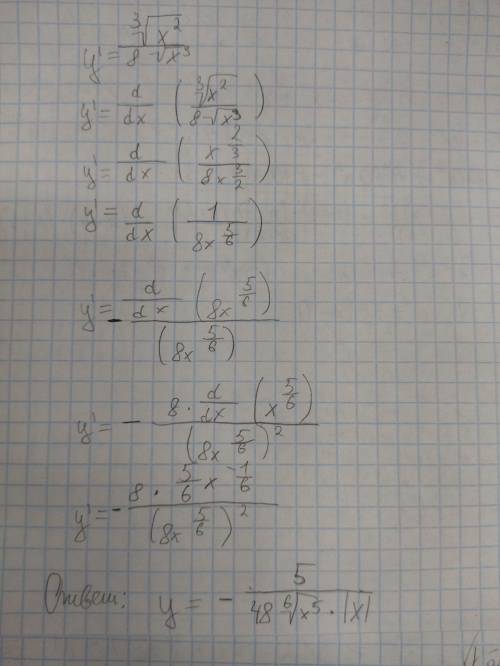 y' = ∛(x²) / (8√(x³))
y' = d/dx (∛(x²) / (8√(x³)))
y' = d/dx (x^(2/3) / (8x^(3/2)))
y' = d/dx (1 / (8x^(5/6)))
y' = - d/dx (8x^(5/6)) / (8x^(5/6))
y' = - 8 · d/dx (x^(5/6)) / (8x^(5/6))²
y' = - 8 · 5/6 x^(-1/6) / (8x^(5/6))²
Ответ: y = - 5 / (48 ⁶√(x⁵) · |x|)